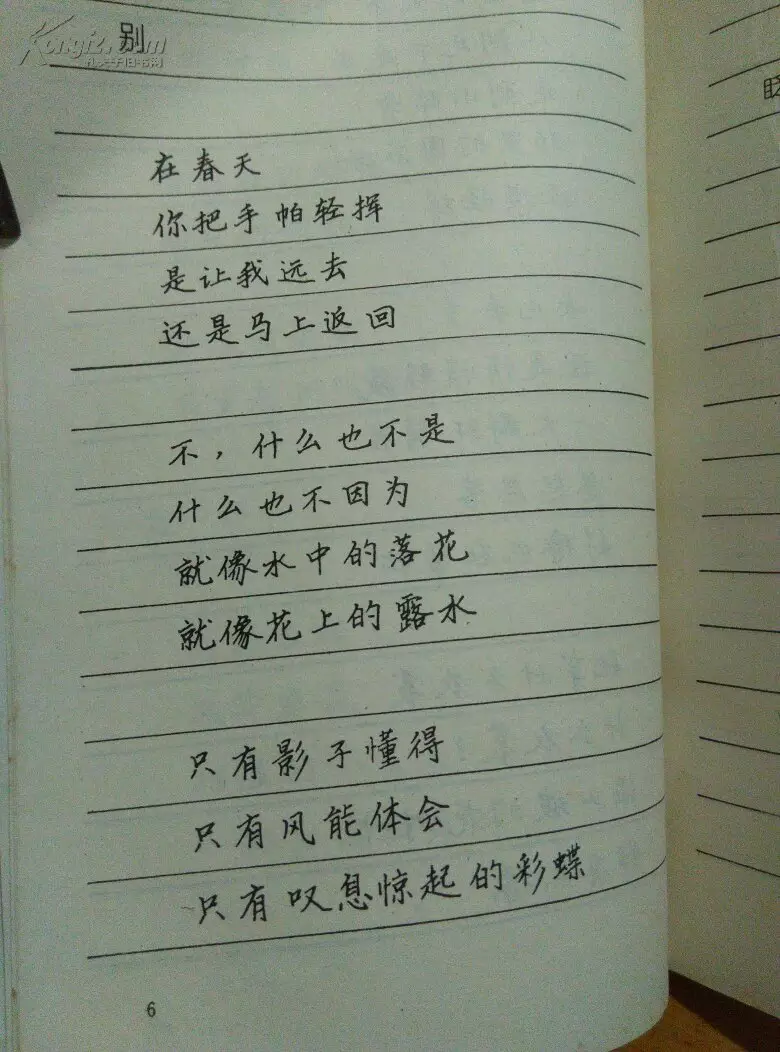 Kongfz.com
孔夫子旧书网
别
在春天
你把手帕轻挥
是让我远去
还是马上返回
不，什么也不是
什么也不因为
就像水中的落花
就像花上的露水
只有影子懂得
只有风能体会
只有叹息惊起的彩蝶
6